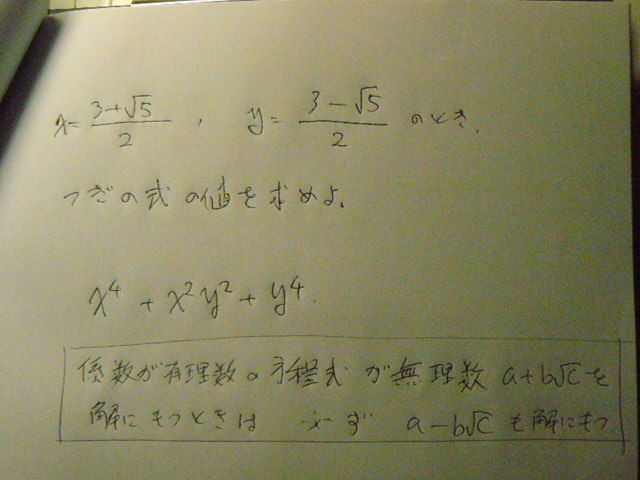 x = (3+√5)/2 , y = (3-√5)/2 のとき.
つぎの式の値を求めよ.
x⁴ + x²y² + y⁴.
係数が有理数の方程式が無理数 a+b√c を
解にもつときは 必ず a-b√c も解にもつ